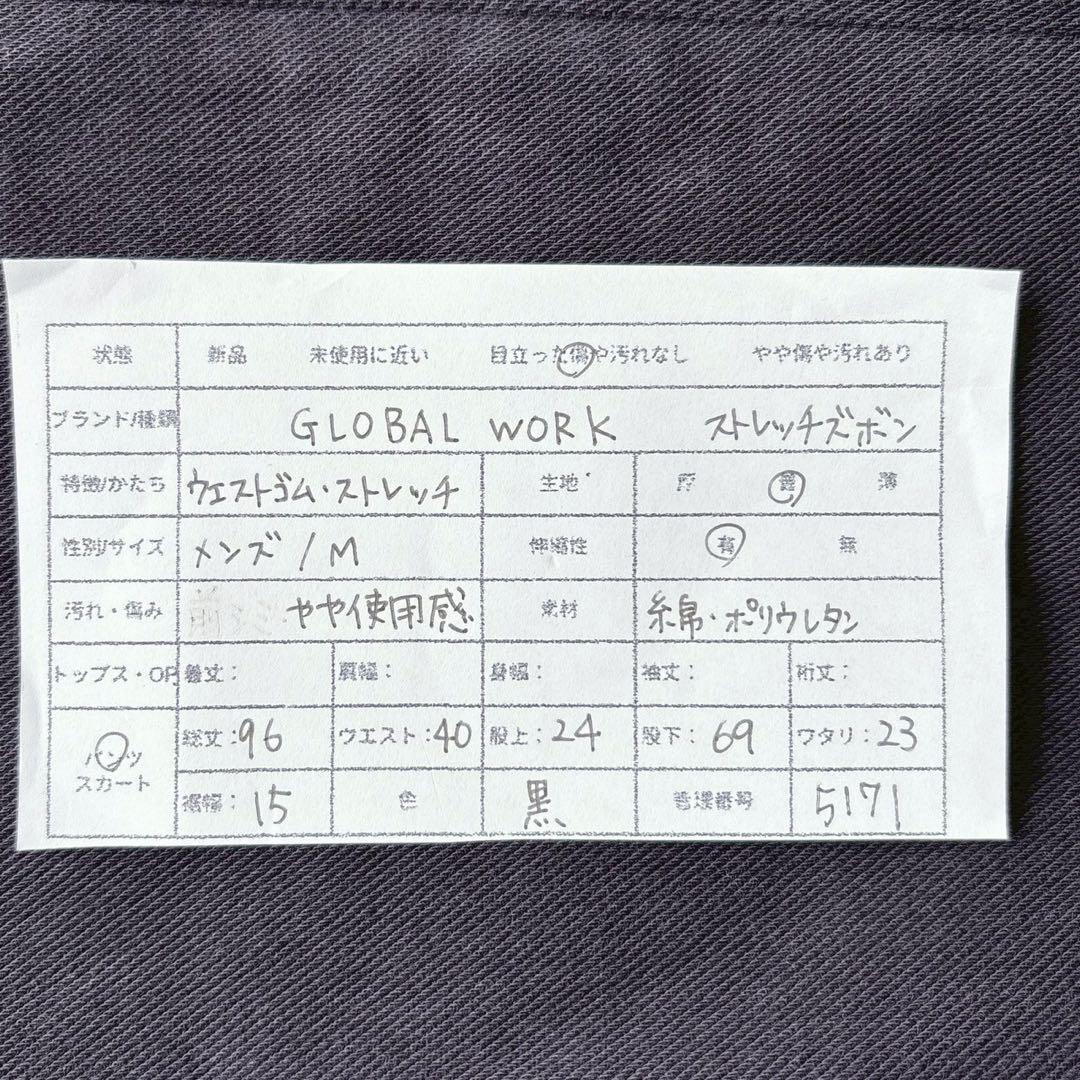 状態 新品 未使用に近い 目立った傷や汚れなし やや傷や汚れあり
ブランド/種類 GLOBAL WORK ストレッチズボン
特徴/かたち ウエストゴム・ストレッチ 生地 厚 普 薄
性別/サイズ メンズ/M 伸縮性 有 無
汚れ・傷み やや使用感 素材 綿・ポリウレタン
トップス・OP 着丈: 肩幅: 身幅: 袖丈: 裄丈:
パンツ 総丈:96 ウエスト:40 股上:24 股下:69 ワタリ:23
スカート
裾幅:15 色 黒 管理番号 5171